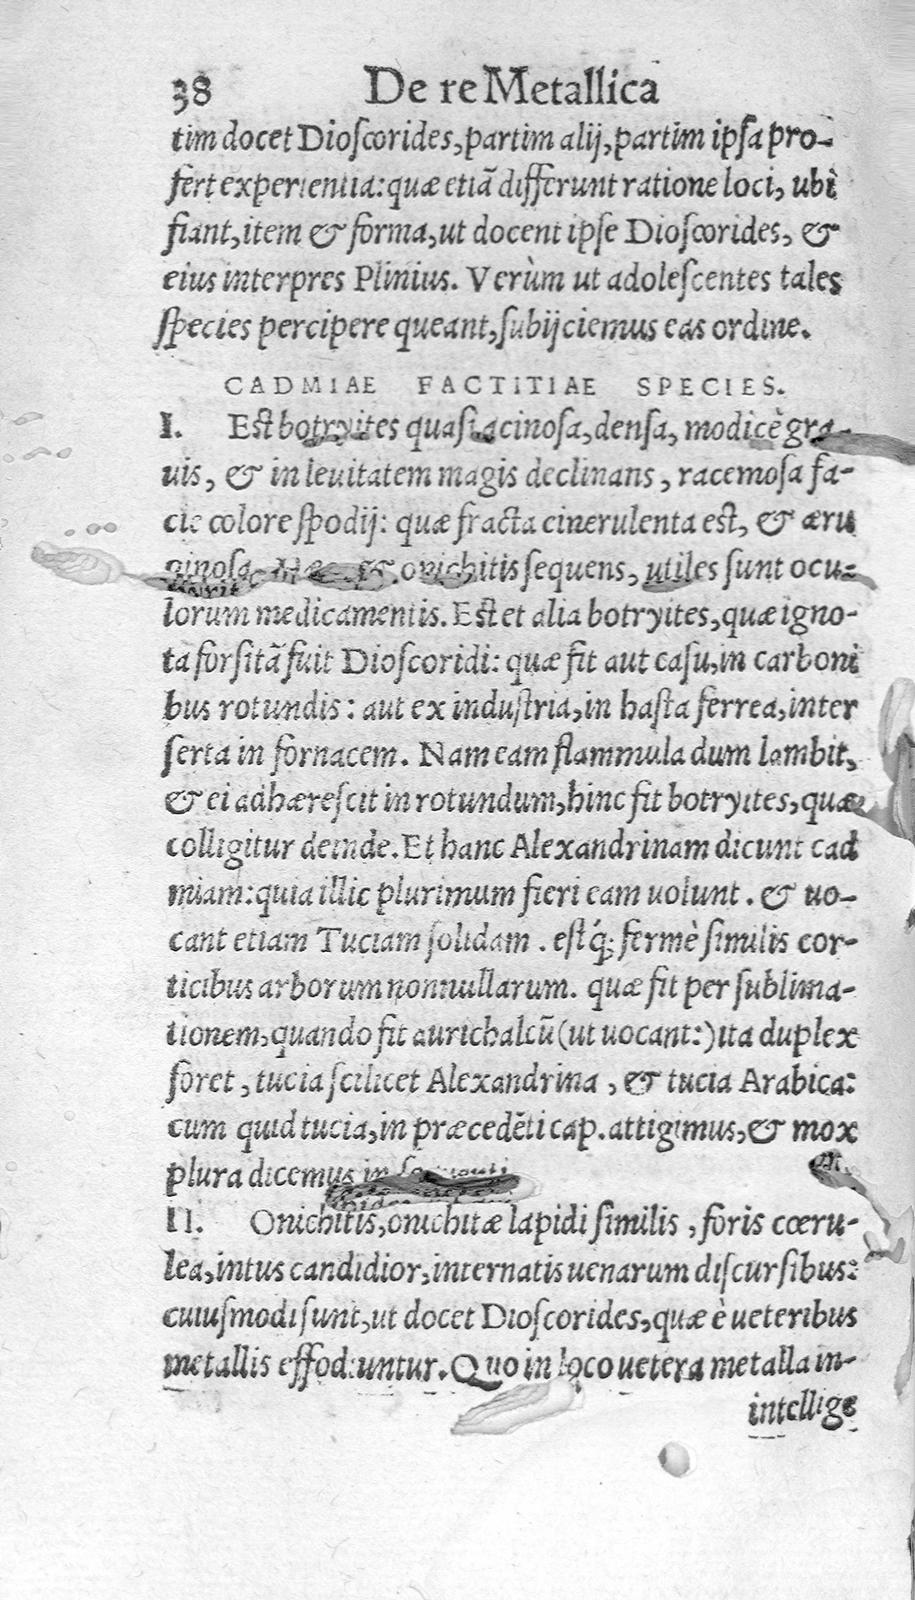 38 De re Metallica
tim docet Dioſcorides, partim alij, partim ipſa pro-
fert experientia: quæ etiã differunt ratione loci, ubi
fiant, item & forma, ut docent ipſe Dioſcorides, &
eius interpres Plinius. Verùm ut adoleſcentes tales
ſpecies percipere queant, ſubijciemus eas ordine.
CADMIAE FACTITIAE SPECIES.
I. Eſt botryites quaſi acinoſa, denſa, modicè gra-
uis, & in leuitatem magis declinans, racemoſa fa-
cie colore ſpodij: quæ fracta cinerulenta eſt, & æru
ginoſa. Hæc & onichitis ſequens, utiles ſunt ocu-
lorum medicamentis. Eſt et alia botryites, quæ igno-
ta forſitã fuit Dioſcoridi: quæ fit aut caſu, in carboni
bus rotundis: aut ex induſtria, in haſta ferrea, inter
ſerta in fornacem. Nam eam flammula dum lambit,
& ei adhæreſcit in rotundum, hinc fit botryites, quæ
colligitur deinde. Et hanc Alexandrinam dicunt cad
miam: quia illic plurimum fieri eam uolunt. & uo-
cant etiam Tuciam ſolidam. eſtq́; fermè ſimilis cor-
ticibus arborum nonnullarum. quæ fit per ſublima-
tionem, quando fit aurichalcũ (ut uocant:) ita duplex
foret, tucia ſcilicet Alexandrina, & tucia Arabica:
cum quid tucia, in præcedẽti cap. attigimus, & mox
plura dicemus in
II. Onichitis, onichitæ lapidi ſimilis, foris cœru-
lea, intus candidior, internatis uenarum diſcurſibus:
cuiuſmodi ſunt, ut docet Dioſcorides, quæ è ueteribus
metallis effodiuntur. Quo in loco uetera metalla in-
intellige